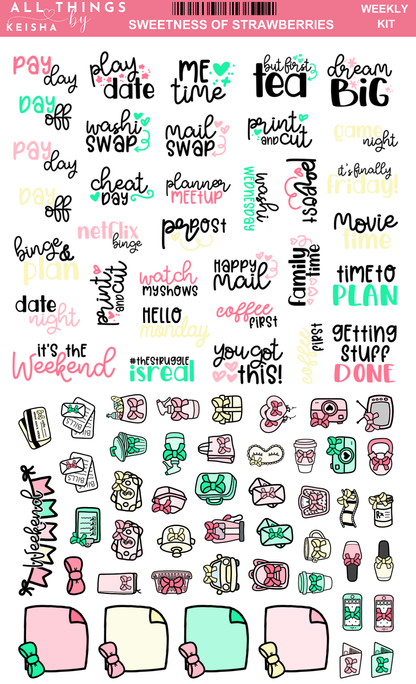 ALL THINGS
by
KEISHA
SWEETNESS OF STRAWBERRIES
WEEKLY
KIT
PAY
day
play
DATE
ME
time
but first
tea
dream
BIG
DAY
off
washi
SWAP
mail
SWAP
print
and CUT
game
night
PAY
day
cheat
DAY
planner
MEETUP
WEDNESDAY
washi
prepOST
it's finally
friday!
DAY
off
netflix
binge
prepOST
Movie
time
binge &
plan
print
and CUT
watch
my shows
HAPPY
Mail
Family
time
TIME TO
PLAN
date
night
HELLO
monday
coffee
FIRST
coffee
FIRST
getting
STUFF
DONE
IT'S THE
Weekend
#THESTRUGGLE
isreal
you got
this!
BILLS
BILLS
BILLS
BILLS
Weekend